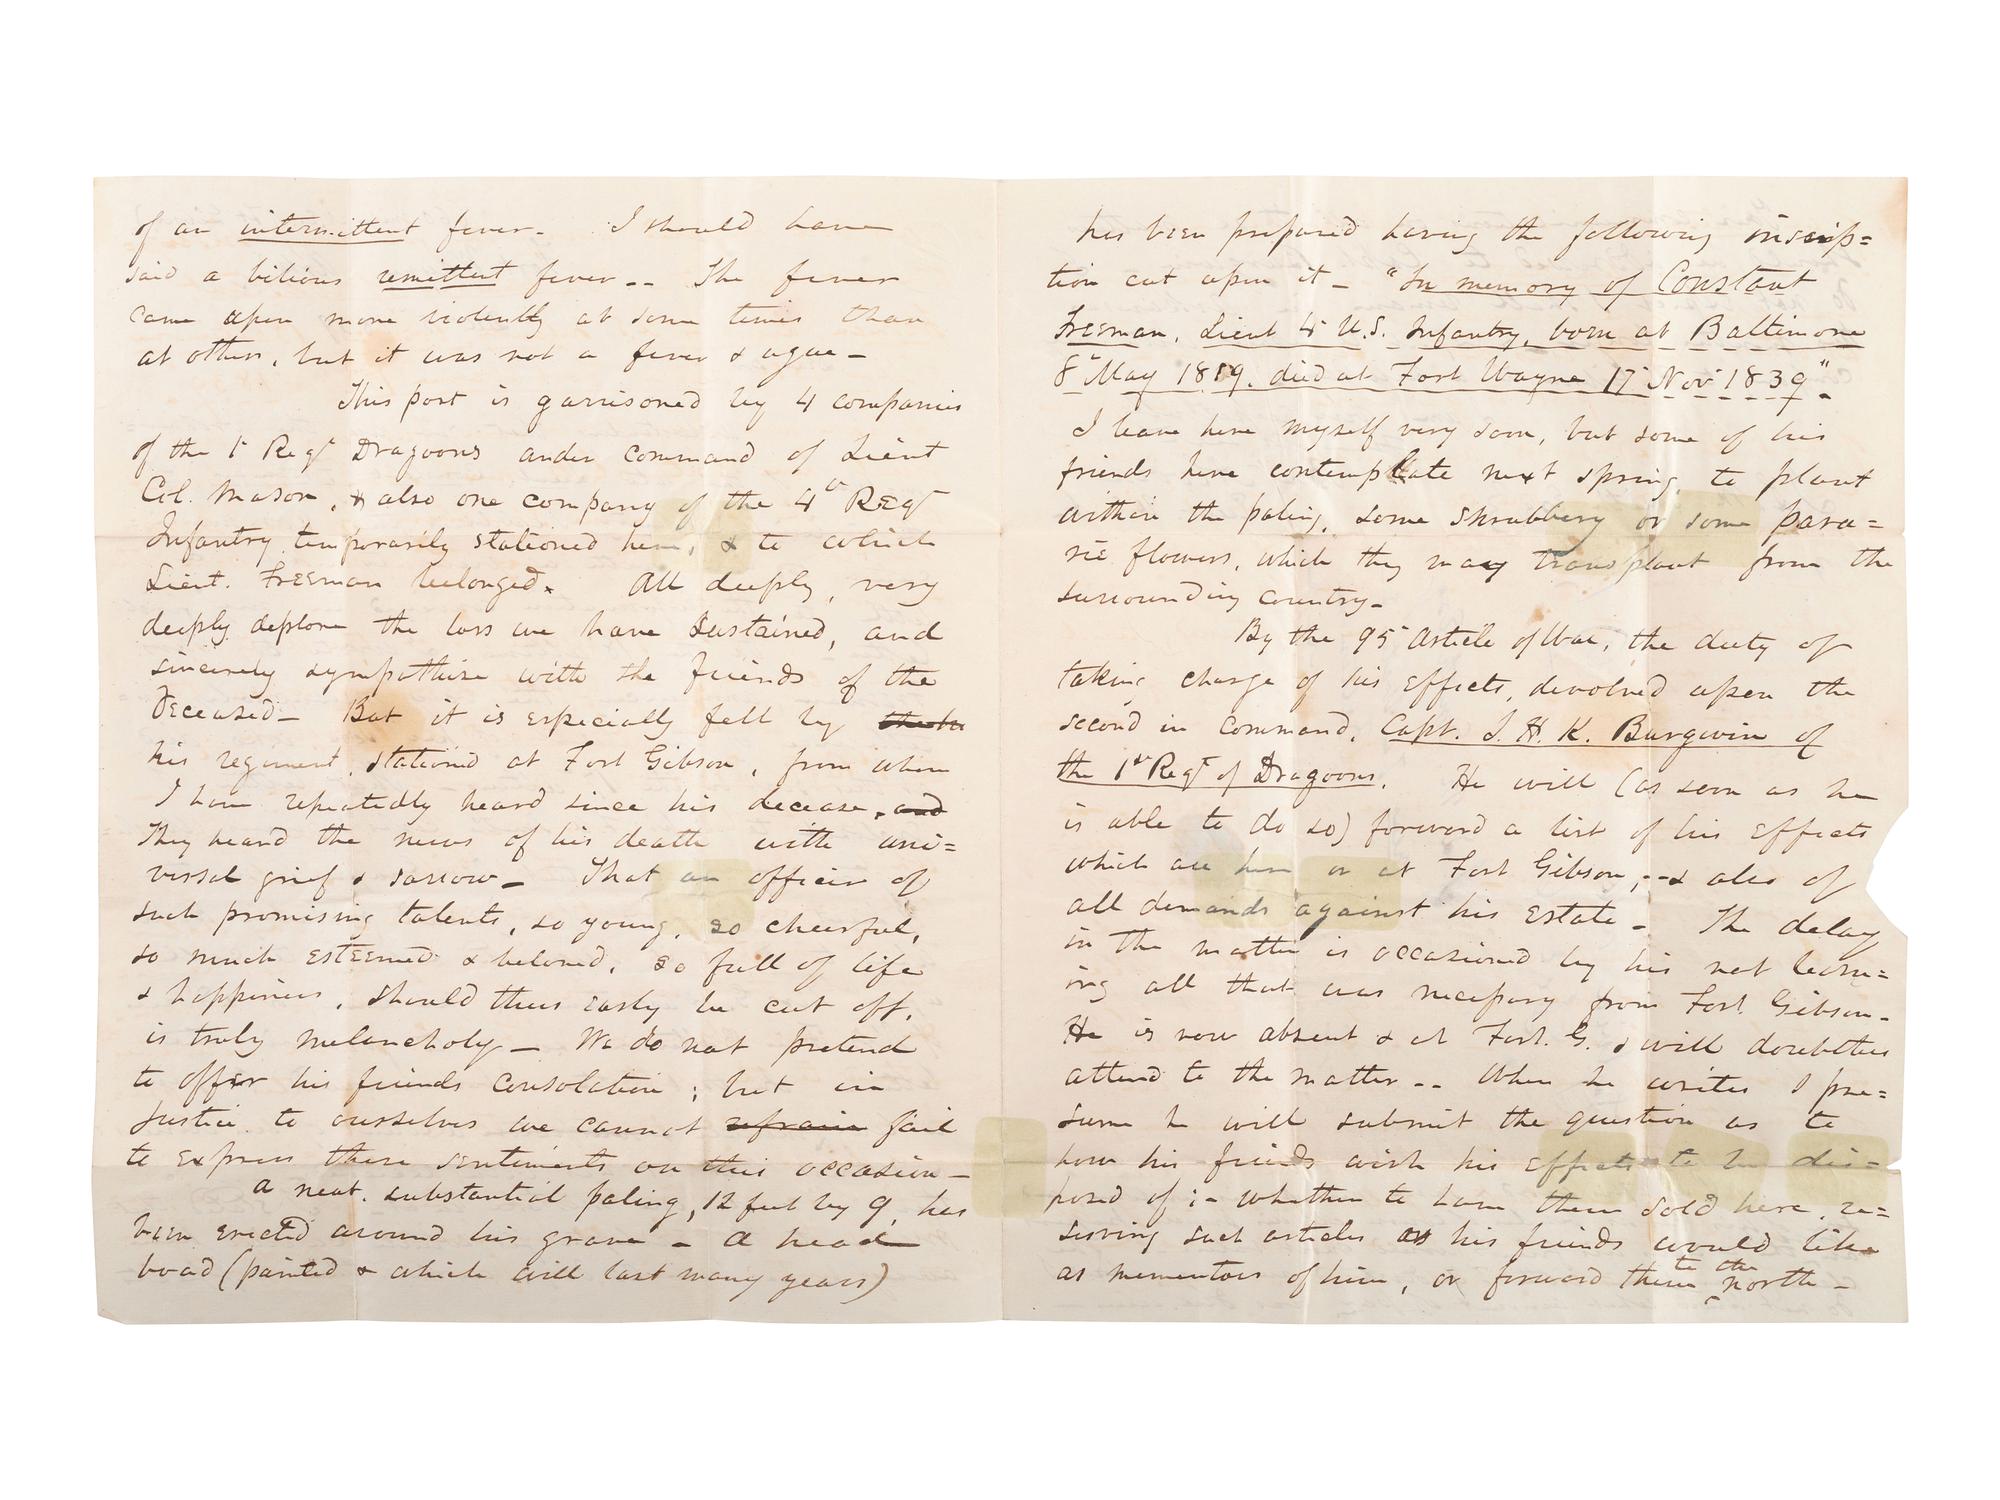 of an intermittent fever - I should have
said a bilious remittent fever -- The fever
came upon more violently at some times than
at others, but it was not a fever & ague -
This post is garrisoned by 4 companies
of the 1t Regt Dragoons under command of Lieut
Col. Mason, & also one company of the 4th Regt
Infantry temporarily stationed here, & to which
Lieut. Freeman belonged. All deeply, very
deeply deplore the loss we have sustained, and
sincerely sympathise with the friends of the
deceased - But it is especially felt by
his regiment, stationed at Fort Gibson, from whom
I have repeatedly heard since his decease, and
They heard the news of his death with uni=
versal grief & sorrow - That an officer of
such promising talents, so young, so cheerful,
so much esteemed & beloved, so full of life
& happiness, should thus early be cut off,
is truly melancholy - We do not pretend
to offer his friends consolation; but in
justice to ourselves we cannot refrain fail
to express these sentiments on this occasion -
A neat, substantial paling, 12 feet by 9, has
been erected around his grave - A head
board (painted & which will last many years)
has been prepared having the following inscrip=
tion cut upon it - "In memory of Constant
Freeman, Lieut 4t U.S. Infantry, born at Baltimore
8" May 1819, died at Fort Wayne 17t Nov 1839" -
I leave here myself very soon, but some of his
friends here contemplate next spring, to plant
within the paling, some shrubbery or some para=
rie flowers, which they may transplant from the
surrounding country -
By the 95t Article of War, the duty of
taking charge of his effects, devolved upon the
second in command, Capt. J. H. K. Burgwin of
the 1st Regt of Dragoons. He will (as soon as he
is able to do so) forward a list of his effects
which are here or at Fort Gibson, -& also of
all demands against his estate - The delay
in the matter is occasioned by his not learn=
ing all that was necessary from Fort Gibson -
He is now absent & at Fort. G. & will doubtless
attend to the matter -- When he writes I pre=
sume he will submit the question as to
how his friends wish his effects to be dis=
posed of :- whether to have them sold here, re=
serving such articles as his friends would like
as mementoes of him, or forward them to the north -